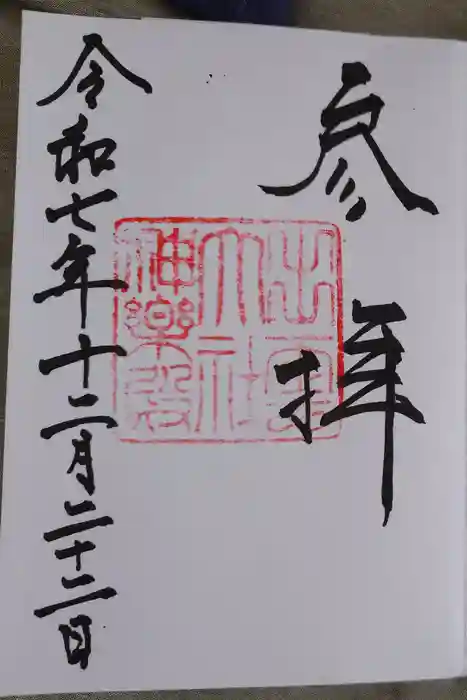 参拝
出雲
大社
神楽殿
令和七年十二月二十二日